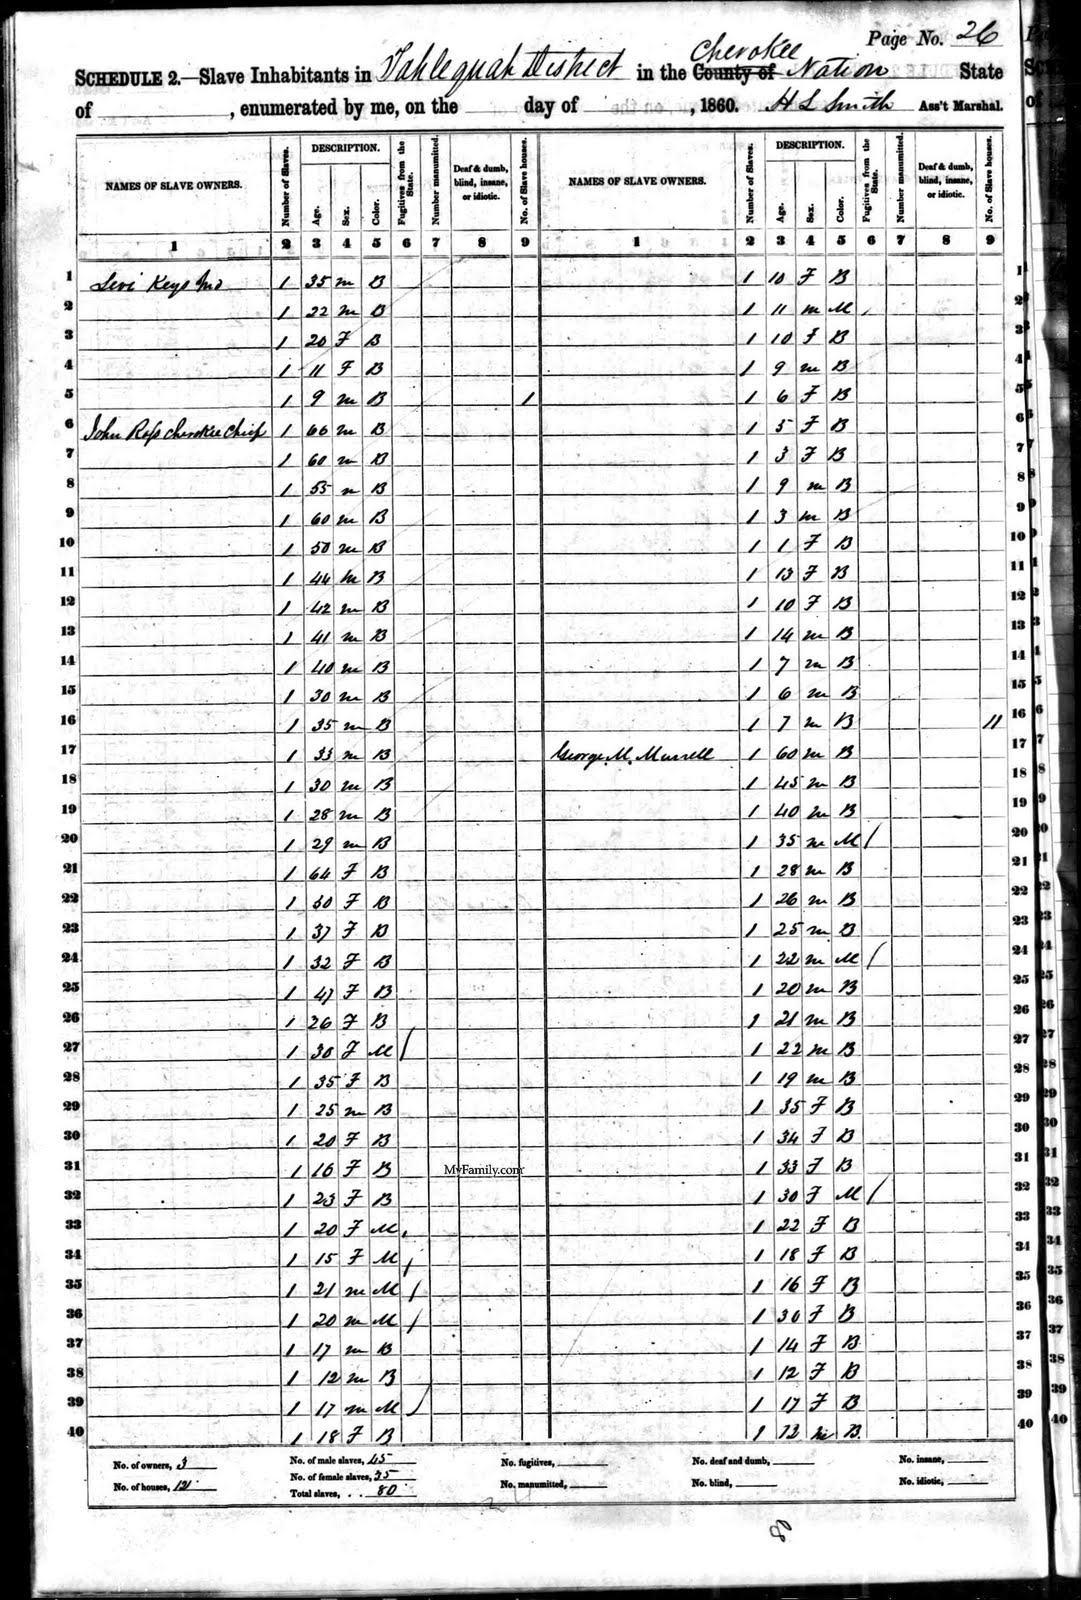 Page No. 26
SCHEDULE 2.—Slave Inhabitants in Tahlequah District in the County of Cherokee Nation State
of , enumerated by me, on the day of , 1860. H L Smith Ass't Marshal.
NAMES OF SLAVE OWNERS. Number of Slaves. DESCRIPTION. Age. Sex. Color. Fugitives from the State. Number manumitted. Deaf & dumb, blind, insane, or idiotic. No. of Slave houses. NAMES OF SLAVE OWNERS. Number of Slaves. DESCRIPTION. Age. Sex. Color. Fugitives from the State. Number manumitted. Deaf & dumb, blind, insane, or idiotic. No. of Slave houses.
1 2 3 4 5 6 7 8 9 1 2 3 4 5 6 7 8 9
1 Levi Keys 1 35 m B 1 10 F B 1
2 1 22 m B 1 11 m M 2
3 1 20 F B 1 10 F B 3
4 1 11 F B 1 9 m B 4
5 1 9 m B 1 1 6 F B 5
6 John Ross Cherokee Chief 1 66 m B 1 5 F B 6
7 1 60 m B 1 3 F B 7
8 1 55 m B 1 9 m B 8
9 1 60 m B 1 3 m B 9
10 1 50 m B 1 1 F B 10
11 1 44 m B 1 13 F B 11
12 1 42 m B 1 10 F B 12
13 1 41 m B 1 14 m B 13
14 1 40 m B 1 7 m B 14
15 1 30 m B 1 6 m B 15
16 1 35 m B 1 7 m B 11 16
17 1 33 m B George M. Murrell 1 60 m B 17
18 1 30 m B 1 45 m B 18
19 1 28 m B 1 40 m B 19
20 1 29 m B 1 35 m M / 20
21 1 64 F B 1 28 m B 21
22 1 50 F B 1 26 m B 22
23 1 37 F B 1 25 m B 23
24 1 32 F B 1 22 m M / 24
25 1 47 F B 1 20 m B 25
26 1 26 F B 1 21 m B 26
27 1 30 F M / 1 22 m B 27
28 1 35 F B 1 19 m B 28
29 1 25 m B 1 35 F B 29
30 1 20 F B 1 34 F B 30
31 1 16 F B MyFamily.com 1 33 F B 31
32 1 23 F B 1 30 F M / 32
33 1 20 F M 1 22 F B 33
34 1 15 F M / 1 18 F B 34
35 1 21 m M / 1 16 F B 35
36 1 20 m M / 1 30 F B 36
37 1 17 m B 1 14 F B 37
38 1 12 m B 1 12 F B 38
39 1 17 m M / 1 17 F B 39
40 1 18 F B 1 B 40
No. of owners, 3 No. of male slaves, 45 No. fugitives, No. deaf and dumb, No. insane,
No. of houses, 12 No. of female slaves, 35 No. manumitted, No. blind, No. idiotic,
Total slaves, 80